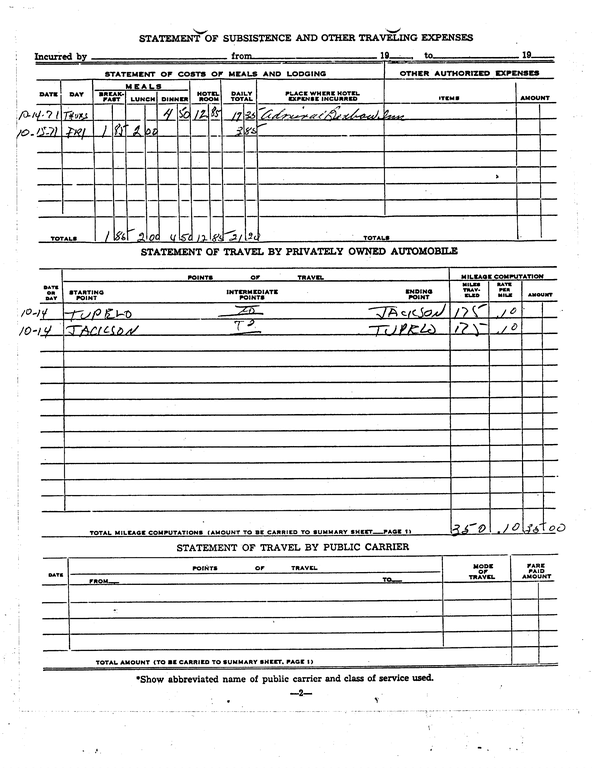 STATEMENT OF SUBSISTENCE AND OTHER TRAVELING EXPENSES
Incurred by from 19 to 19
STATEMENT OF COSTS OF MEALS AND LODGING OTHER AUTHORIZED EXPENSES
DATE DAY MEALS BREAK-FAST LUNCH DINNER HOTEL ROOM DAILY TOTAL PLACE WHERE HOTEL EXPENSE INCURRED ITEMS AMOUNT
10-14-71 THURS 4 50 12 85 17 35 Admiral Benbow Inn
10-15-71 FRI 1 85 2 00 3 85
TOTALS 1 85 2 00 4 50 12 85 21 20 TOTALS
STATEMENT OF TRAVEL BY PRIVATELY OWNED AUTOMOBILE
DATE OR DAY POINTS OF TRAVEL MILEAGE COMPUTATION
STARTING POINT INTERMEDIATE POINTS ENDING POINT MILES TRAV-ELED RATE PER MILE AMOUNT
10-14 TUPELO TO JACKSON 175 .10
10-14 JACKSON TO TUPELO 175 .10
TOTAL MILEAGE COMPUTATIONS (AMOUNT TO BE CARRIED TO SUMMARY SHEET—PAGE 1) 350 .10 35 00
STATEMENT OF TRAVEL BY PUBLIC CARRIER
DATE POINTS OF TRAVEL MODE OF TRAVEL FARE PAID AMOUNT
FROM TO
TOTAL AMOUNT (TO BE CARRIED TO SUMMARY SHEET, PAGE 1)
*Show abbreviated name of public carrier and class of service used.
—2—